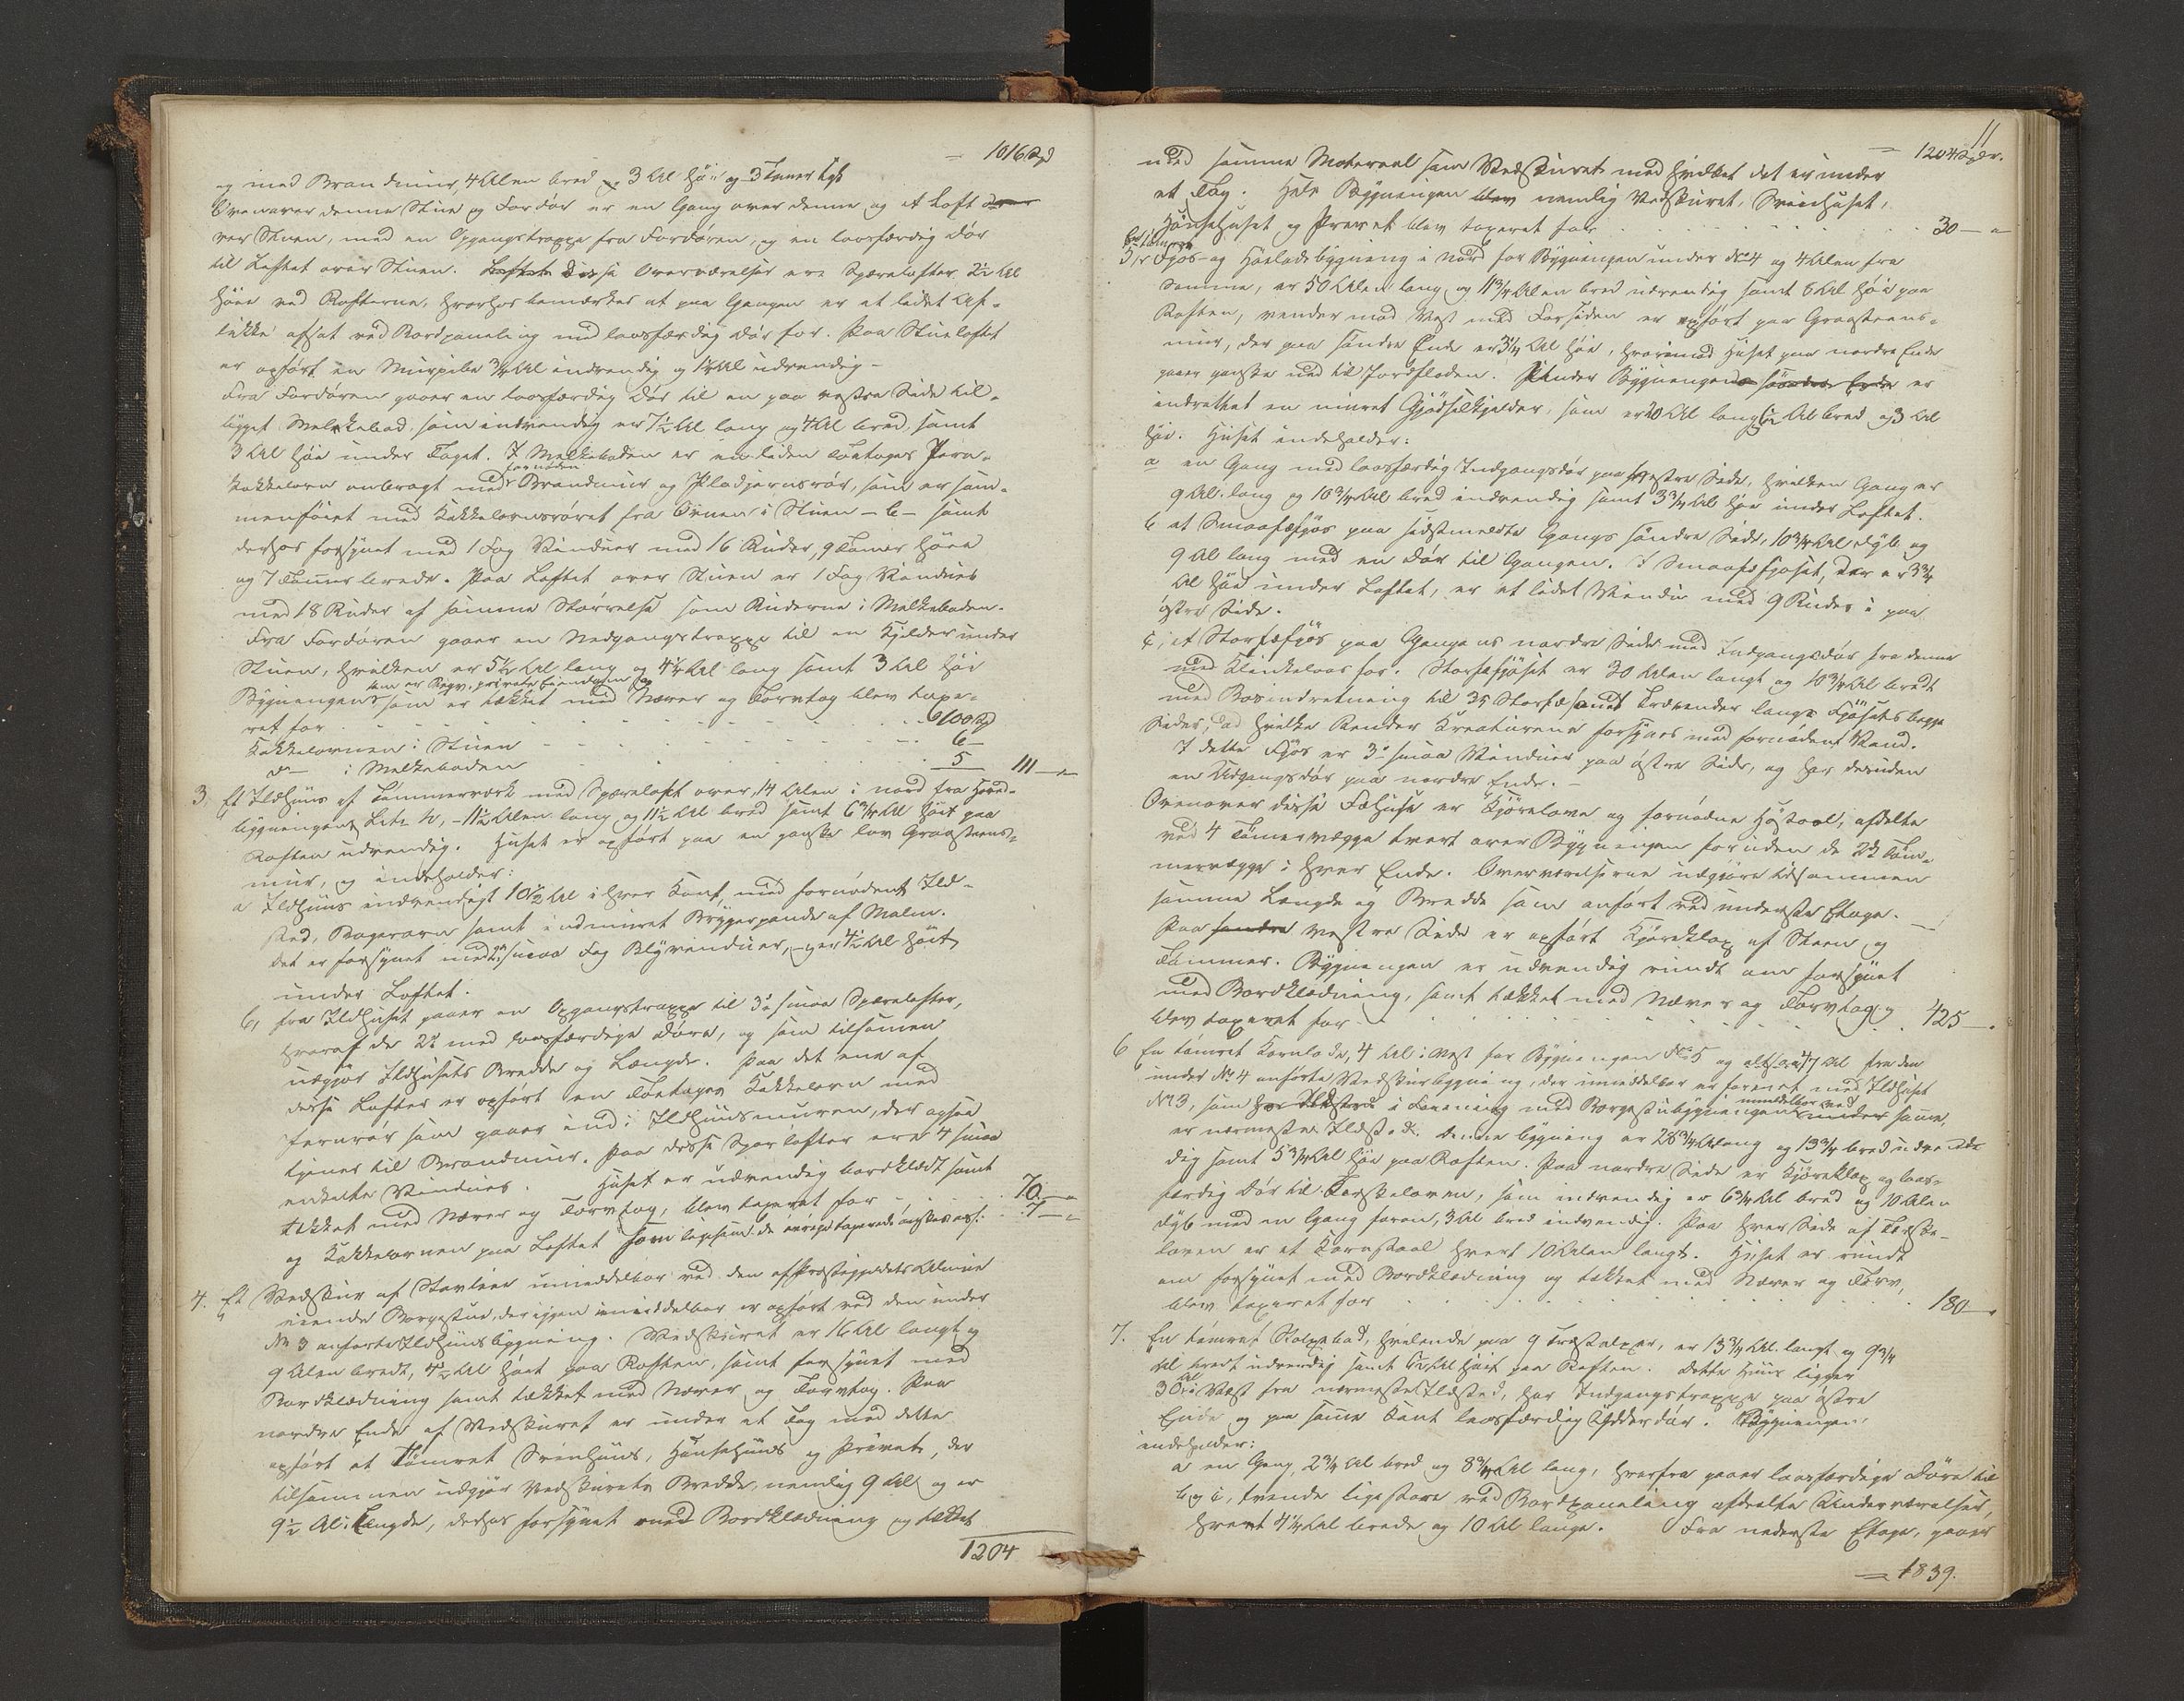 = 1016 Spd
og med Brandmuur, 4 Alen bred og 3 Al høi og 3 Tomer tyk
Ovenover denne Stue og Fordør er en Gang over denne og et Loft
ver Stuen, med en Opgangstrappe fra Fordøren, og en laasfærdig Dør
til Loftet over Stuen. Loftet Disse Overværelser ere Spæreloster, 2½ Al
høie ved Rafterne, hvorhos bemærkes at paa Gangen er et lidet Af-
lukke afsat ved Bordpaneling med laasfærdig Dør for. Paa Stueloftet
er opført en Muurpibe ¾ Al indvendig og 1¼ Al udvendig -
Fra Fordøren gaaer en laasfærdig Dør til en paa vestre Side til-
bygget Melkebod, som indvendig er 7½ Al lang og 4 Al bred, samt
3 Al høi under Taget. I Melkeboden er en liden toetages Jern-
fornøden
kakkelovn anbragt med Brandmuur og Pladejernsrør, som er sam-
menføiet med Kakkelovnsrøret fra Ovnen i Stuen - C - samt
derhos forsynet med 1 Fag Vinduer med 16 Ruder, 9 Tomer høie
og 7 Tommer brede. Paa Loftet over Stuen er 1 Fag Vindues
med 18 Ruder af samme Størrelse som Ruderne i Melkeboden.
Fra Fordøren gaaer en Nedgangstrappe til en Kjelder under
Stuen, hvilken er 5½ Al lang og 4¼ Al lang samt 3 Al høi
som er Opsv. private Eiendom og
Bygningen som er tækket med Næver og Torvtag blev taxe-
ret for . . . . . . 100 Spd
Kakkelovnen i Stuen - - - - 6 -
do - i Melkeboden . . . . 5 111 - "
3, Et Ildhuus af Tømmerværk med Spæreloft over, 14 Alen i nord fra Hoved-
bygningens Litr. h, - 11½ Alen lang og 11½ Al bred samt 6¾ Al høit paa
Raften udvendig. Huset er opført paa en ganske lav Graasteens-
muur, og indeholder:
a Ildhuus indvendigt 10½ Al i hver Kant, med fornødent Ild-
sted, Bagerovn samt indmuret Bryggerpande af Malm.
Det er forsynet med 2 smaa Fag Blyvinduer, og er 4½ Al høit
under Loftet.
b, fra Ildhuset gaaer en Opgangstrappe til 3de smaa Spæreloster,
hvoraf de 2de med laasfærdige Døre, og som tilsamen
udgjør Ildhusets Bredde og Længde. Paa det ene af
disse Lofter er opført en toetages Kakkelovn med
Jernrør som gaaer ind i Ildhuusmuren, der ogsaa
tjener til Brandmuur. Paa disse Sperlofter ere 4 smaa
enkelte Vinduer. Huset er udvendig bordklædt samt
tækket med Næver og Torvtag, blev taxeret for - . . . . 70 - "
og Kakkelovnen paa Loftet som ligesom de øvrige taxerede . . 7 - "
4. Et Vedskuur af Stavlier umiddelbar ved den af Præstegjeldets Almue
eiende Borgestue, der igjen umiddelbar er opført ved den under
No 3 anførte Ildhuusbygning. Vedskuret er 16 Al langt og
9 Alen bredt, 4½ Al høit paa Raften, samt forsynet med
Bordklædning samt tækket med Næver og Torvtag. Paa
nordre Ende af Vedskuret er under et Tag med dette
opført et tømret Sviinhuus, Hønsehuus og Privet, der
tilsammen udgjør Vedskurets Bredde, nemlig 9 Al og er
9½ Al i Længde, derhos forsynet med Bordklædning og tækket
1204
11
= 1204 Spdr.
med samme Materaal som Vedskuret med hvilket det er under
et Tag. Hele Bygningen blev nemlig Vedskuret, Sviinhuset,
Hønsehuset og Privet blev taxeret for . . . . . . . 30 - "
En tømret
5, Fjøs- og Høeladebygning i nord for Bygningen under No 4 og 4 Alen fra
Samme, er 50 Alen lang og 11¾ Alen bred udvendig samt 6 Al høi paa
Raften, vender mod Vest med Forsiden er opført paa Graasteens-
muur, der paa søndre Ende er 3¼ Al høi, hvorimod Huset paa nordre Ende
gaaer ganske ned til Jordfladen. Under Bygningens søndre Ende er
indrettet en muret Gjødselkjelder, som er 20 Al lang, Al bred og 3 Al
høi. Huset indeholder:
a en Gang med laasfærdig Indgangsdør paa vestre Side, hvilken Gang er
9 Al. lang og 10¾ Al bred indvendig samt 3¾ Al høi under Loftet.
b et Smaafæfjøs paa sidstmeldte Gangs søndre Side, 10¾ Al dyb og
9 Al lang med en Dør til Gangen. I Smaafæfjøset, der er 3¾
Al høi under Loftet, er et lidet Vindue med 9 Ruder i paa
østre Side.
c, et Storfæfjøs paa Gangens nordre Side med Indgangsdør fra denne
med Klinkelaas for. Storfæfjøset er 30 Alen langt og 10¾ Al bredt
med Baasindretning til 35 Storfæ samt Trærender langs Fjøsets begge
Sider, ved hvilke Render Kreaturene forsynes med fornøden Vand.
I dette Fjøs er 3de smaa Vinduer paa østre Side, og har desuden
en Udgangsdør paa nordre Ende. -
Ovenover disse Fæhuse er Kjørelove og fornødne Høstaal, afdelte
ved 4 Tømervægge tvert over Bygningen foruden de 2de Tøm-
mervægge i hver Ende. Overværelserne udgjøre tilsammen
samme Længde og Bredde som anført ved underste Etage. -
Paa søndre vestre Side er opført Kjøreklop af Steen og
Tømmer. Bygningen er udvendig rundt om forsynet
med Bordklædning, samt tækket med Næver og Torvtag og
blev taxeret for . . . . . . . . . 425 - "
6 En tømret Kornlade, 4 Al i Vest for Bygningen No 5 og altsaa 17 Al fra den
under No 4 anførte Vedskuurbygning, der umiddelbar er forenet med Ildhuset
No 3, som har Ildsted i Forening med Borgestubygningen umiddelbar ved samme,
er nærmeste Ildsted. Denne bygning er 26¾ Al lang og 13¾ bred udven-
dig samt 5¾ Al høi paa Raften. Paa nordre Side er Kjøreklop og laas-
færdig Dør til Tærskeloven, som indvendig er 6¾ Al bred og 10 Alen
dyb med en Gang foran, 3 Al bred indvendig. Paa hver Side af Tærske-
loven er et Kornstaal hvert 10 Alen langt. Huset er rundt
om forsynet med Bordklædning og tækket med Næver og Torv,
blev taxeret for . . . . . . . . . 180 - "
7. En tømret Stolpebod, hvilende paa 9 Træstolper, er 13¾ Al. langt og 9¾
Al bredt udvendig samt 6½ Al høit paa Raften. Dette Huus ligger
30 Al i Vest fra nærmeste Ildsted, har Indgangstrappe paa østre
Ende og paa samme Kant laasfærdig Yderdør. Bygningen
indeholder:
a en Gang, 2¾ Al bred og 8¾ Al lang, hvorfra gaaer laasfærdige Døre til
b og c, tvende ligestore ved Bordpaneling afdeelte Underværelser,
hvert 4¼ Al brede og 10 Al lange. Fra nederste Etage, gaaer
= 1839.